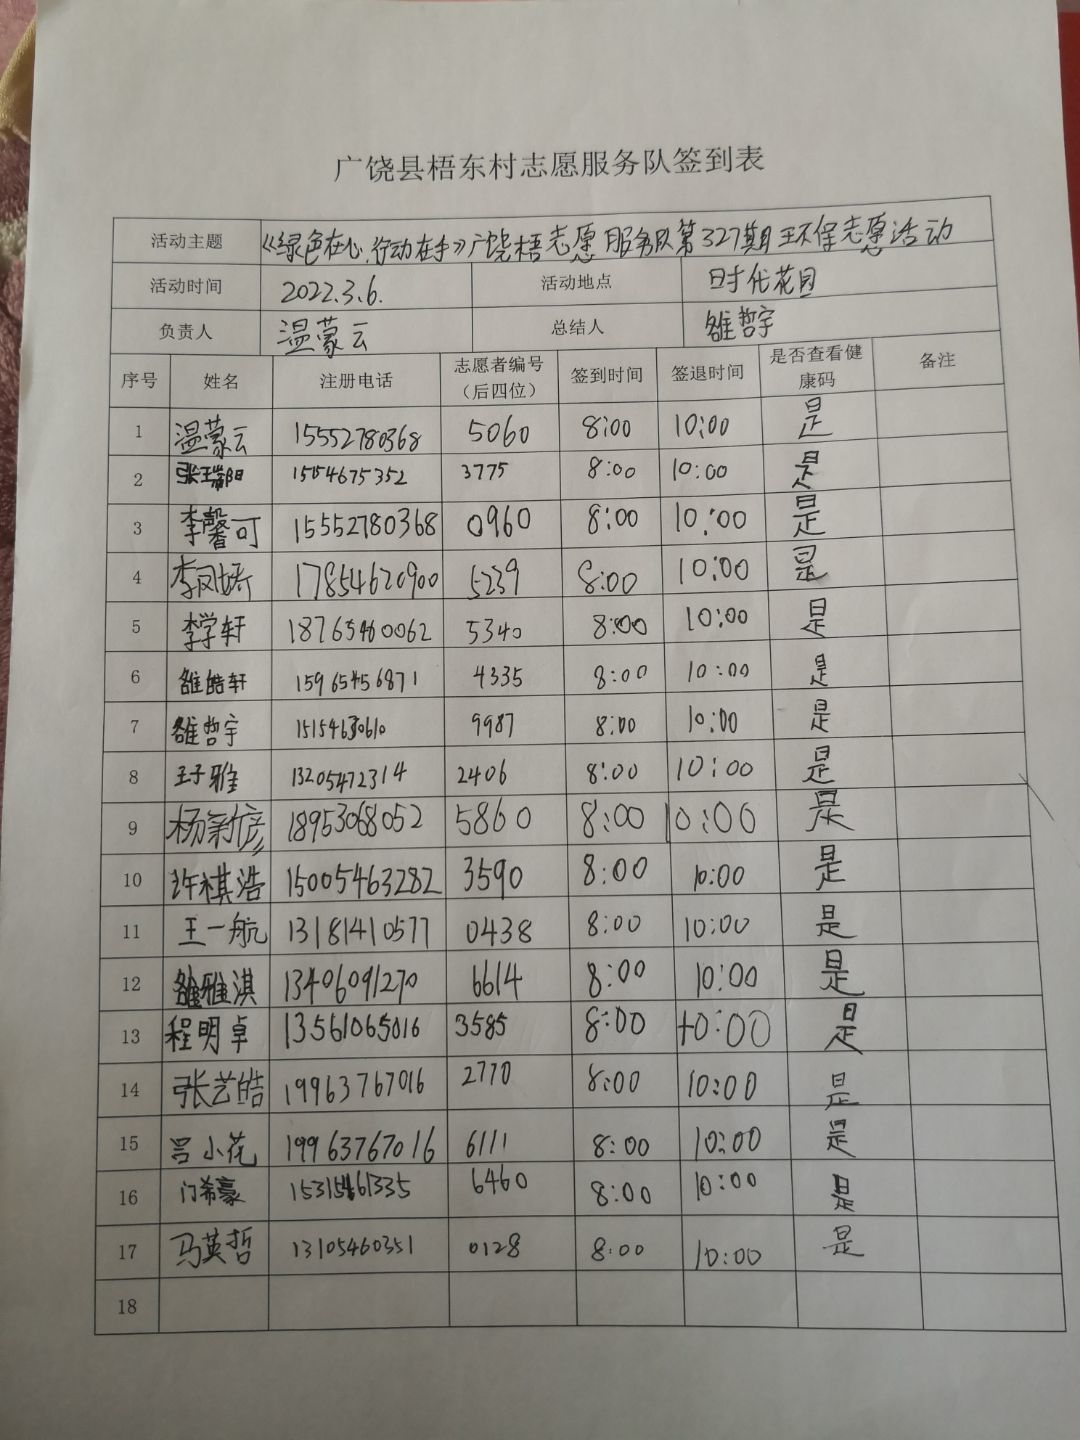 广饶县梧东村志愿服务队签到表
活动主题 《绿色在心,行动在手》广饶梧志愿服务队第327期环保志愿活动
活动时间 2022.3.6. 活动地点 时代花园
负责人 温蒙云 总结人 雒哲宇
序号 姓名 注册电话 志愿者编号(后四位) 签到时间 签退时间 是否查看健康码 备注
1 温蒙云 15552780368 5060 8:00 10:00 是
2 15154675352 3775 8:00 10:00 是
3 李馨可 15552780368 0960 8:00 10:00 是
4 李凤娇 17854620900 5239 8:00 10:00 是
5 李学轩 18765460062 5340 8:00 10:00 是
6 雒皓轩 15965456871 4335 8:00 10:00 是
7 雒哲宇 15154630610 9987 8:00 10:00 是
8 王子雅 13205472314 2406 8:00 10:00 是
9 杨新彦 18953068052 5860 8:00 10:00 是
10 许祺浩 15005463282 3590 8:00 10:00 是
11 王一航 13181410577 0438 8:00 10:00 是
12 雒雅淇 13406091270 6614 8:00 10:00 是
13 程明卓 13561065016 3585 8:00 10:00 是
14 张艺皓 19963767016 2770 8:00 10:00 是
15 吕小花 19963767016 6111 8:00 10:00 是
16 门希豪 15315461335 6460 8:00 10:00 是
17 马英哲 13105460351 0128 8:00 10:00 是
18